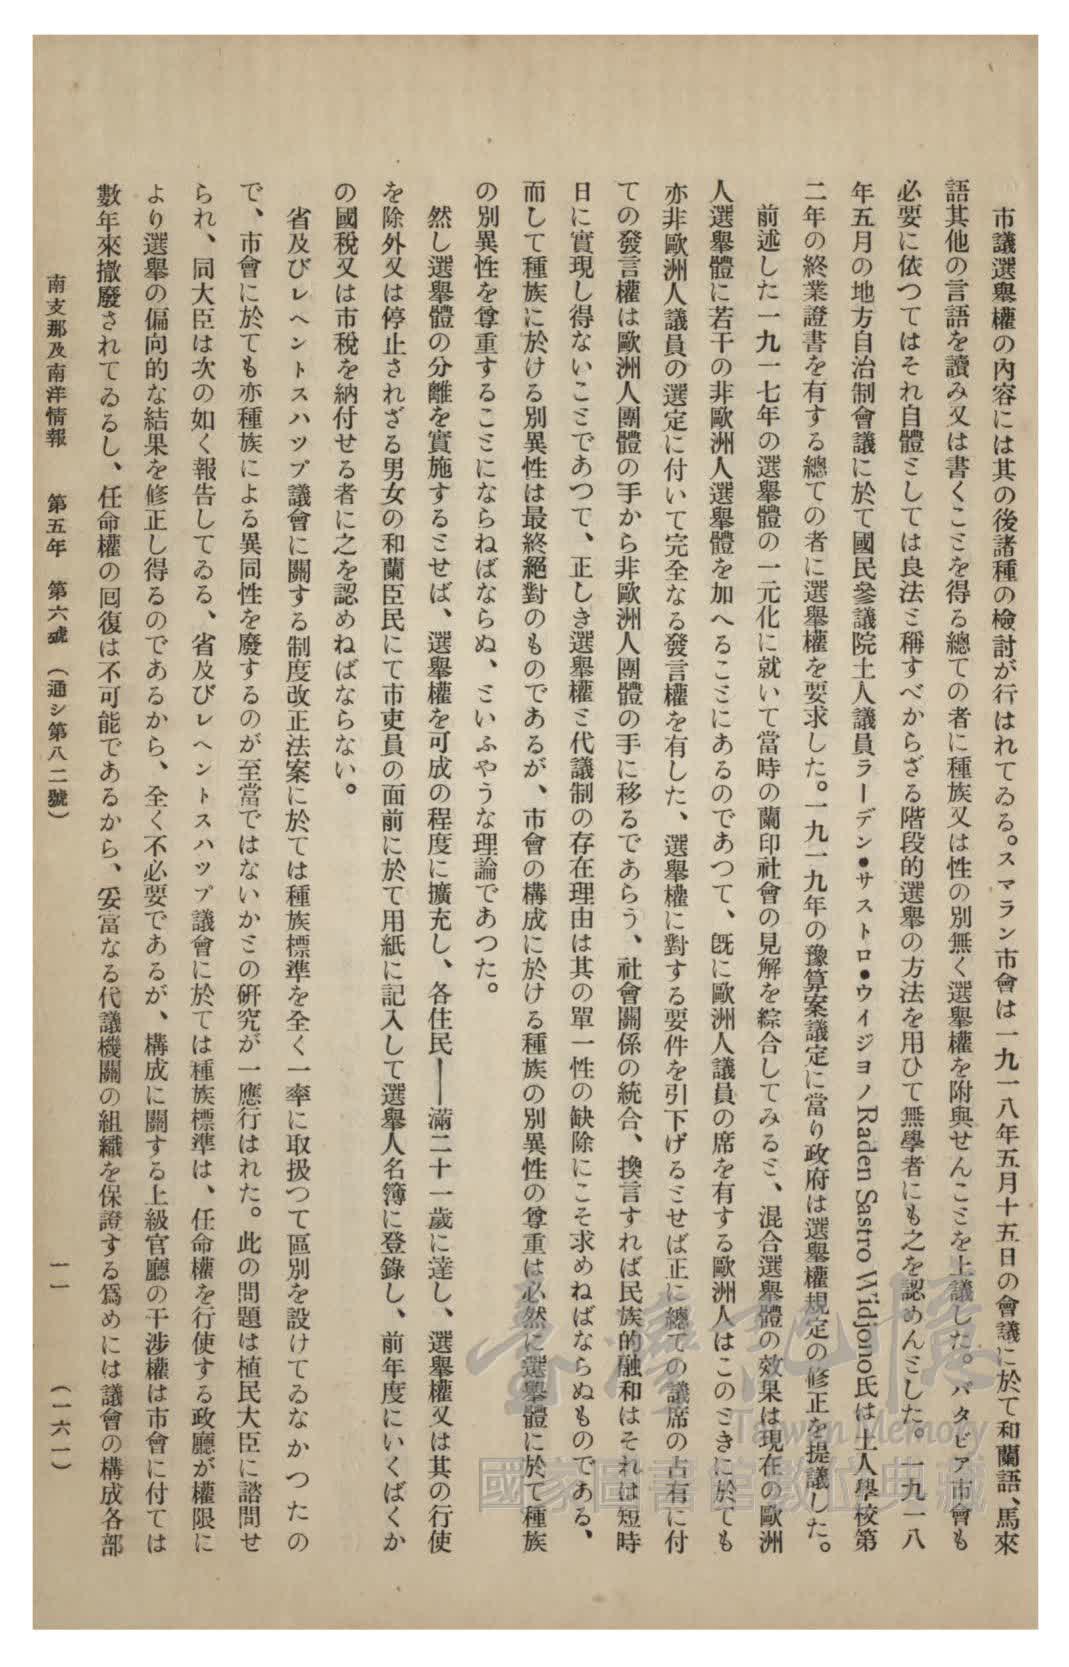 市議選擧權の內容には其の後諸種の檢討が行はれてゐる。スマラン市會は一九一八年五月十五日の會議に於て和蘭語、馬來
語其他の言語を讀み又は書くことを得る總ての者に種族又は性の別無く選擧權を附與せんことを上議した。バタビア市會も
必要に依つてはそれ自體としては良法と稱すべからざる階段的選擧の方法を用ひて無學者にも之を認めんとした。一九一八
年五月の地方自治制會議に於て國民參議院土人議員ラーデン●サストロ●ウイジヨノRaden Sastro Widjono氏は土人學校第
二年の終業證書を有する總ての者に選擧權を要求した。一九一九年の豫算案議定に當り政府は選擧權規定の修正を提議した。
前述した一九一七年の選擧體の一元化に就いて當時の蘭印社會の見解を綜合してみると、混合選擧體の效果は現在の歐洲
人選擧體に若干の非歐洲人選擧體を加へることにあるのであつて、旣に歐洲人議員の席を有する歐洲人はこのときに於ても
亦非歐洲人議員の選定に付いて完全なる發言權を有した、選擧權に對する要件を引下げるとせば正に總ての議席の占有に付
ての發言權は歐洲人團體の手から非歐洲人團體の手に移るであらう、社會關係の統合、換言すれば民族的融和はそれは短時
日に實現し得ないことであつて、正しき選擧權と代議制の存在理由は其の單一性の缺除にこそ求めねばならぬものである、
而して種族に於ける別異性は最終絕對のものであるが、市會の構成に於ける種族の別異性の尊重は必然に選擧體に於て種族
の別異性を尊重することにならねばならぬ、といふやうな理論であつた。
然し選擧體の分離を實施するとせば、選擧權を可成の程度に擴充し、各住民——滿二十一歲に達し、選擧權又は其の行使
を除外又は停止されざる男女の和蘭臣民にて市吏員の面前に於て用紙に記入して選擧人名簿に登錄し、前年度にいくばくか
の國稅又は市稅を納付せる者に之を認めねばならない。
省及びレヘントスハツプ議會に關する制度改正法案に於ては種族標準を全く一率に取扱つて區別を設けてゐなかつたの
で、市會に於ても亦種族による異同性を廢するのが至當ではないかとの硏究が一應行はれた。此の問題は植民大臣に諮問せ
られ、同大臣は次の如く報告してゐる、省及びレヘントスハツプ議會に於ては種族標準は、任命權を行使する政廳が權限に
より選擧の偏向的な結果を修正し得るのであるから、全く不必要であるが、構成に關する上級官廳の干涉權は市會に付ては
數年來撤廢されてゐるし、任命權の囘復は不可能であるから、妥當なる代議機關の組織を保證する爲めには議會の構成各部
南支那及南洋情報　第五年　第六號　（通シ第八二號）　一一　（一六一）
臺灣記憶
Taiwan Memory
國家圖書館數位典藏